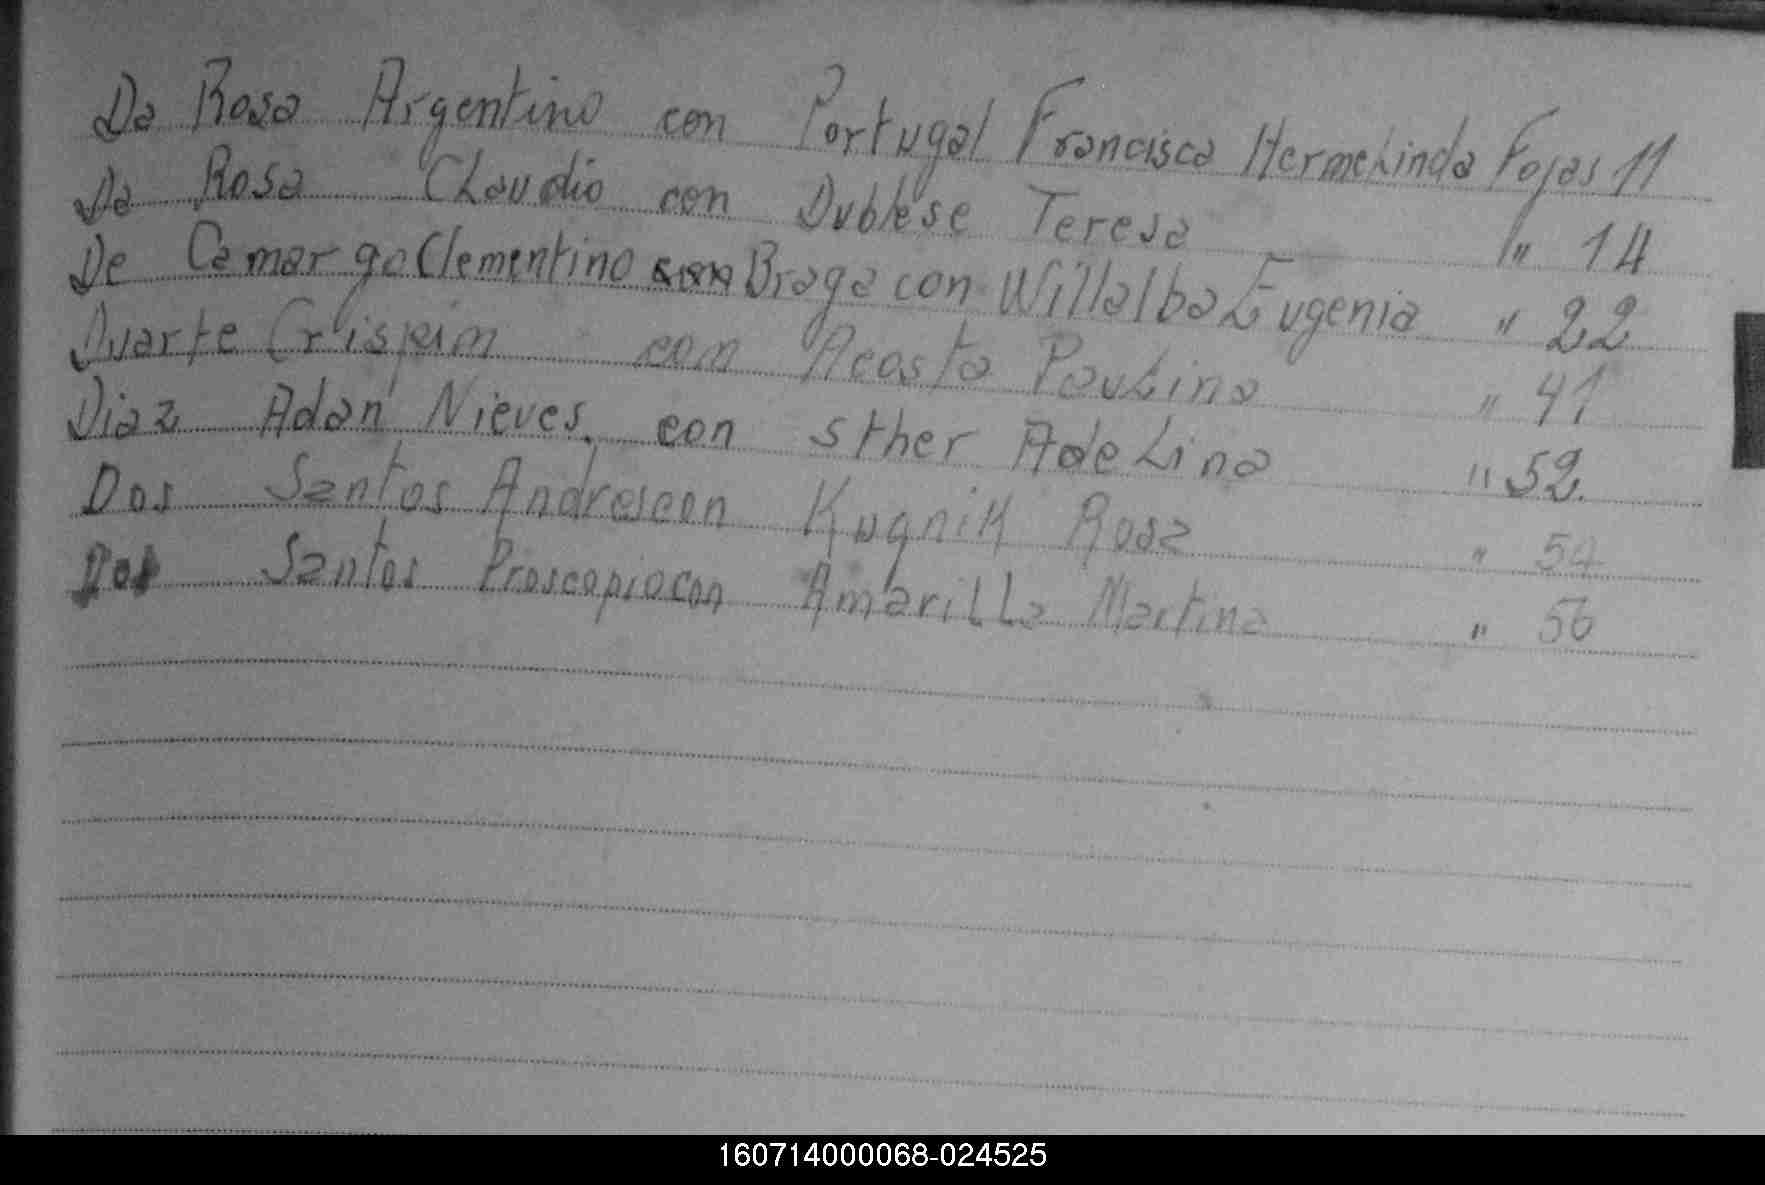 Da Rosa Argentino con Portugal Francisca Hermelinda Fojas 11
Da Rosa Claudio con Dublese Teresa " 14
De Camargo Clementino Braga con Willalba Eugenia " 22
Duarte Crispim con Acosta Paulina " 41
Diaz Adan Nieves. con sther Adelina " 52
Dos Santos Andres con Kugnik Rosa " 54
Dos Santos Proscopio con Amarilla Martina " 56
160714000068-024525